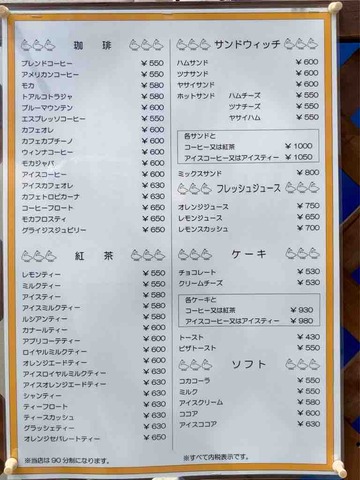 珈琲
ブレンドコーヒー ¥550
アメリカンコーヒー ¥550
モカ ¥580
トアルコトラジャ ¥580
ブルーマウンテン ¥600
エスプレッソコーヒー ¥550
カフェオレ ¥600
カフェカプチーノ ¥600
ウィンナコーヒー ¥600
モカジャバ ¥600
アイスコーヒー ¥600
アイスカフェオレ ¥630
カフェトロピカーナ ¥630
コーヒーフロート ¥650
モカフロスティ ¥650
グライジスジュビリー ¥650
紅茶
レモンティー ¥550
ミルクティー ¥550
アイスティー ¥580
アイスミルクティー ¥580
ルシアンティー ¥580
カナールティー ¥600
アプリコーテティー ¥600
ロイヤルミルクティー ¥600
オレンジエードティー ¥600
アイスロイヤルミルクティー ¥630
アイスオレンジエードティー ¥630
シャンティー ¥630
ティーフロート ¥630
ティースカッシュ ¥630
グラッシェティー ¥630
オレンジセパレートティー ¥650
※当店は90分制になります。
サンドウィッチ
ハムサンド ¥600
ツナサンド ¥600
ヤサイサンド ¥600
ホットサンド ハムチーズ ¥550
ツナチーズ ¥550
ヤサイハム ¥550
各サンドと
コーヒー又は紅茶 ¥1000
アイスコーヒー又はアイスティー ¥1050
ミックスサンド ¥800
フレッシュジュース
オレンジジュース ¥750
レモンジュース ¥650
レモンスカッシュ ¥700
ケーキ
チョコレート ¥530
クリームチーズ ¥530
各ケーキと
コーヒー又は紅茶 ¥930
アイスコーヒー又はアイスティー ¥980
トースト ¥430
ピザトースト ¥550
ソフト
コカコーラ ¥550
ミルク ¥550
アイスクリーム ¥580
ココア ¥600
アイスココア ¥630
※すべて内税表示です。